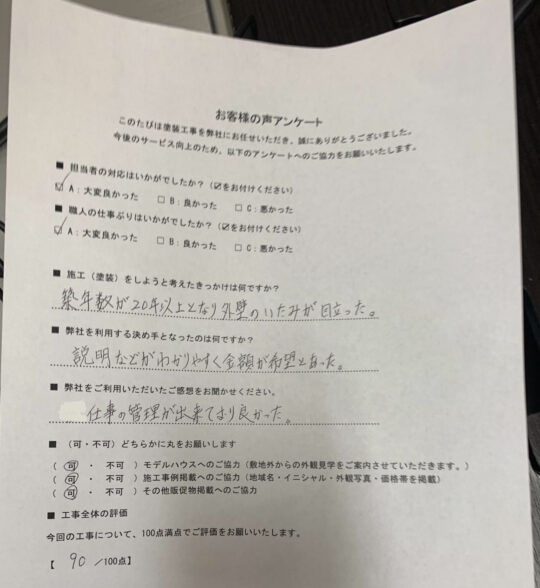 お客様の声アンケート
このたびは塗装工事を弊社にお任せいただき、誠にありがとうございました。
今後のサービス向上のため、以下のアンケートへのご協力をお願いいたします。
■ 担当者の対応はいかがでしたか？（☑をお付けください）
☑ A：大変良かった □ B：良かった □ C：悪かった
■ 職人の仕事ぶりはいかがでしたか？（☑をお付けください）
☑ A：大変良かった □ B：良かった □ C：悪かった
■ 施工（塗装）をしようと考えたきっかけは何ですか？
築年数が20年以上となり外壁のいたみが目立った。
■ 弊社を利用する決め手となったのは何ですか？
説明などがわかりやすく金額が希望とあった。
■ 弊社をご利用いただいたご感想をお聞かせください。
仕事の管理が出来ており良かった。
■ （可・不可）どちらかに丸をお願いします
（ 可 ・ 不可 ）モデルハウスへのご協力（敷地外からの外観見学をご案内させていただきます。）
（ 可 ・ 不可 ）施工事例掲載へのご協力（地域名・イニシャル・外観写真・価格帯を掲載）
（ 可 ・ 不可 ）その他販促物掲載へのご協力
■ 工事全体の評価
今回の工事について、100点満点でご評価をお願いいたします。
【 90 ／100点】